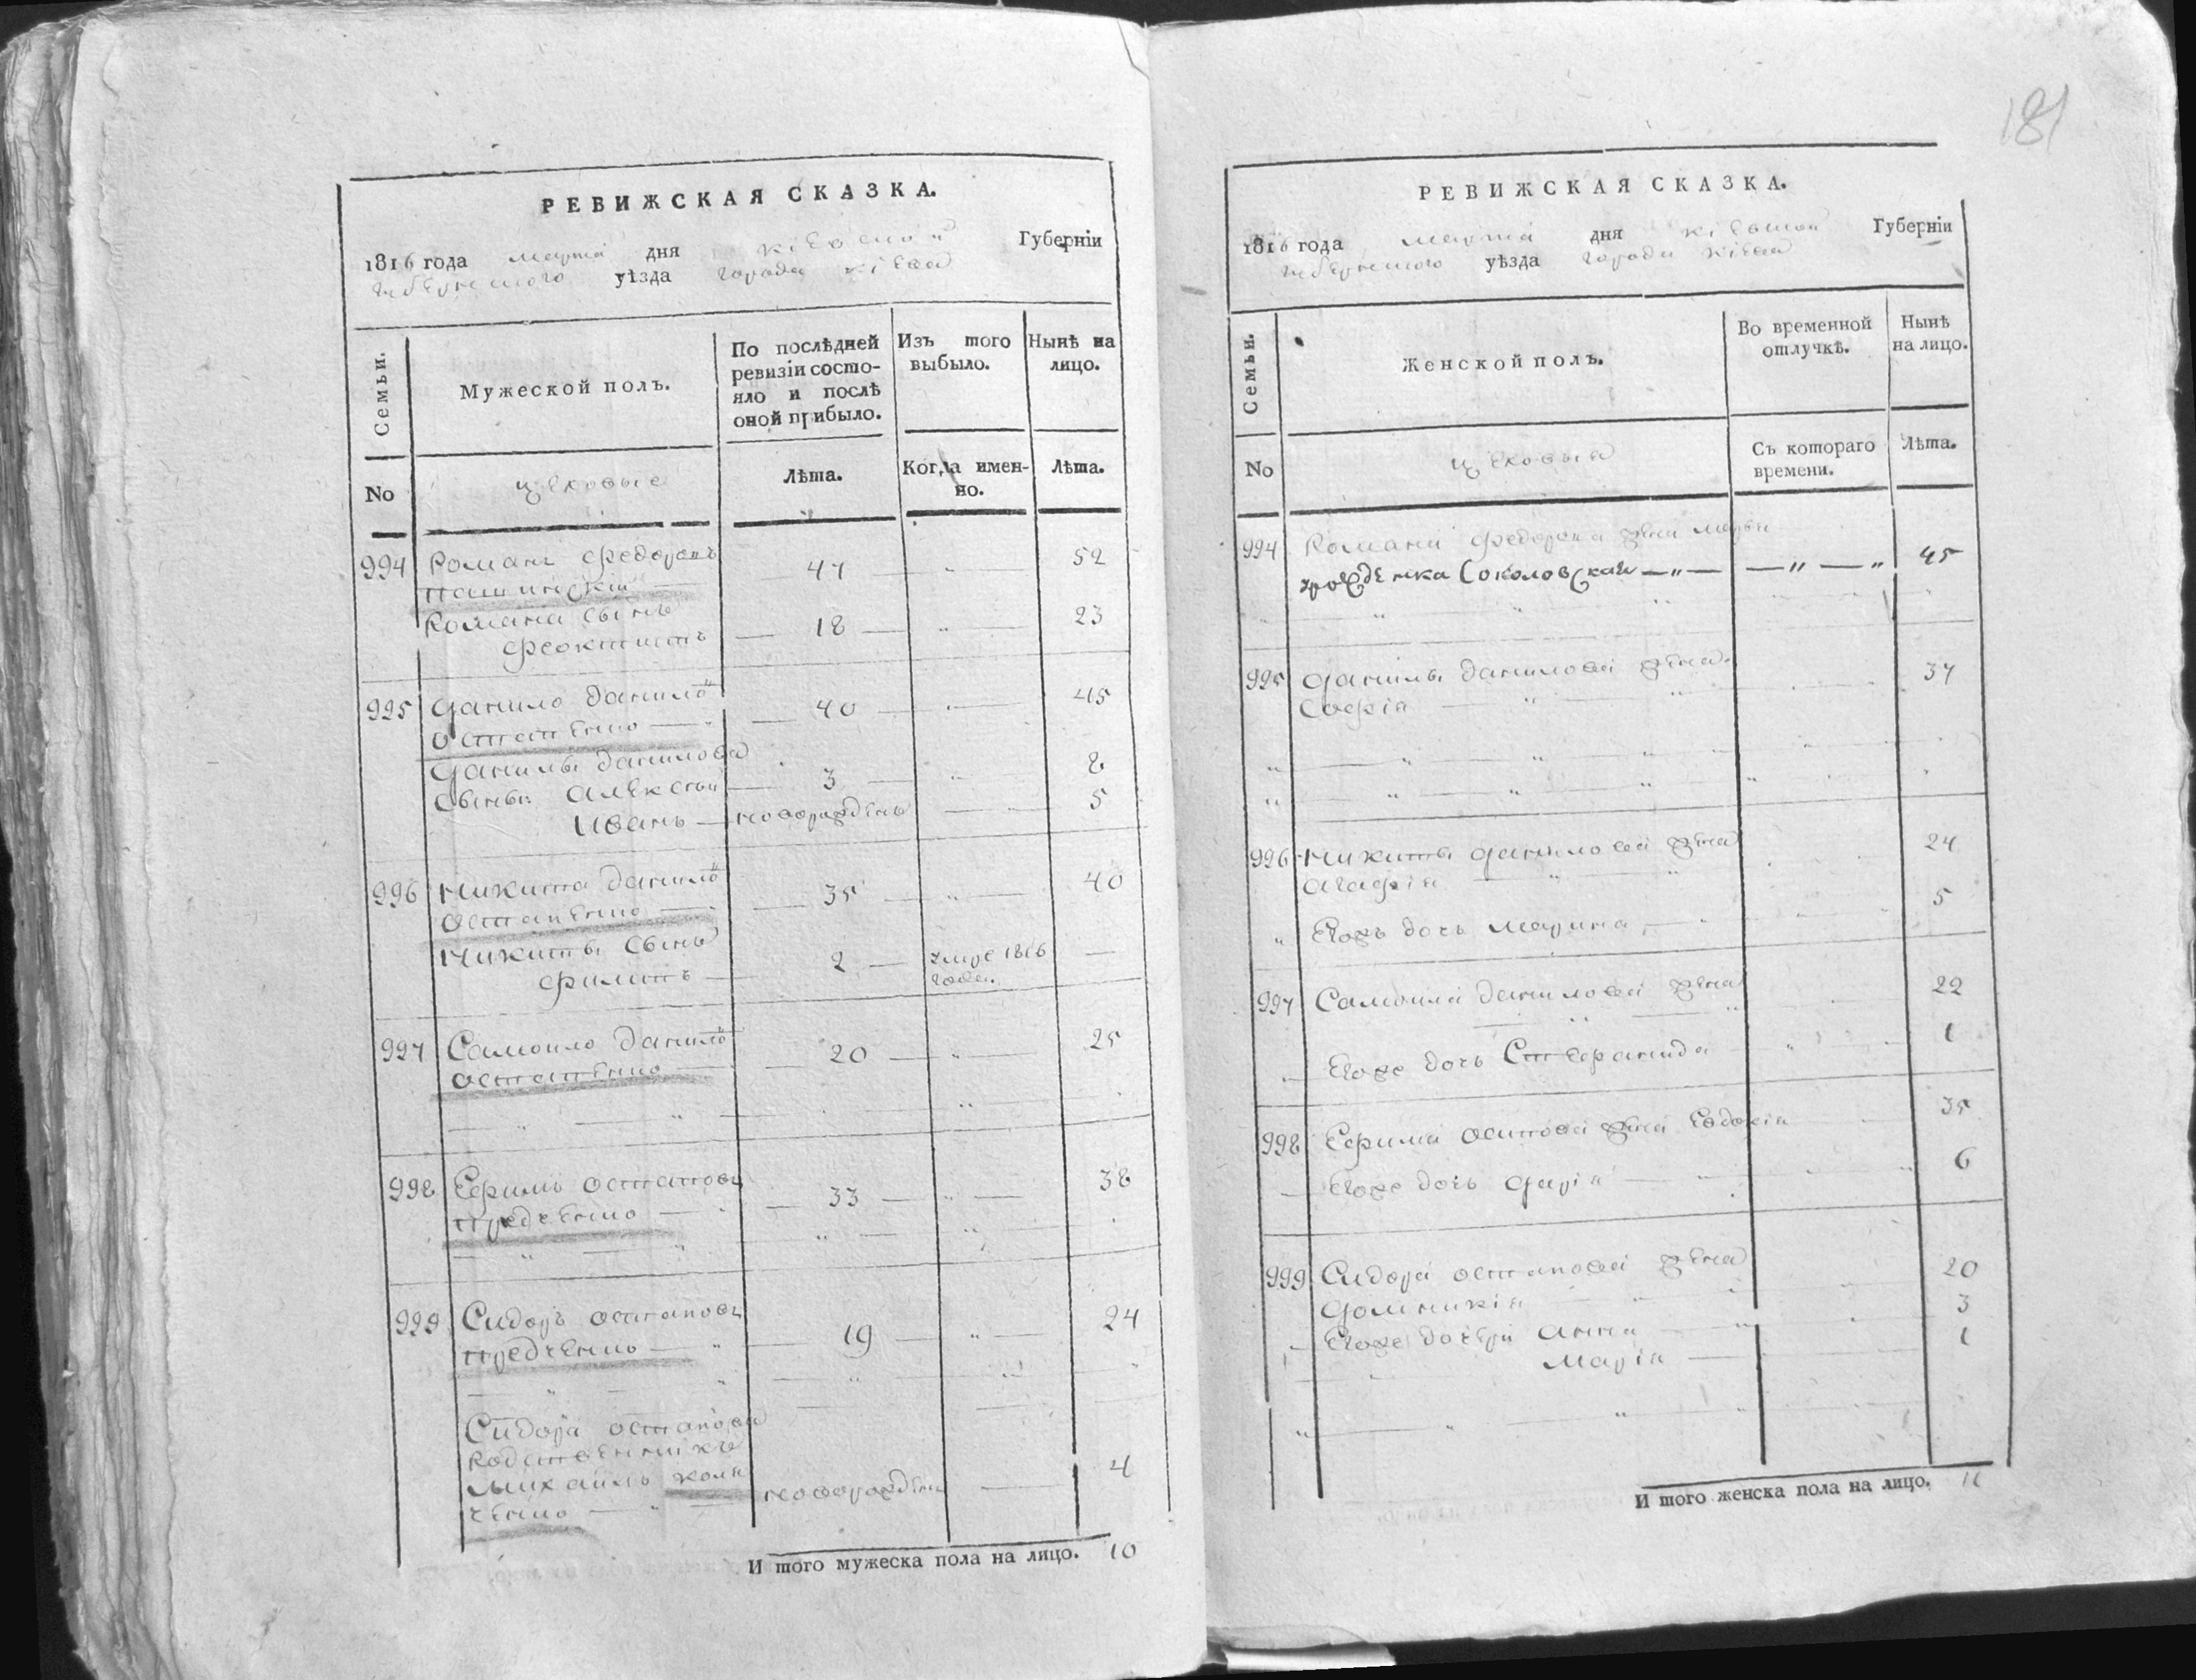 181
РЕВИЖСКАЯ СКАЗКА.
1816 года марта дня кіевской Губерніи
уѣзда города кіева
Семьи.
Мужеской полъ.
По послѣдней
ревизіи состо-
яло и послѣ
оной прибыло.
Изъ того
выбыло.
Нынѣ на
лицо.
No
цеховые
Лѣта.
Когда имен-
но.
Лѣта.
994 Романъ Федоровъ
47 52
Романа сынъ
Феоктистъ 18 23
995 Данило Данилов
Остапенко 40 45
Данилы Данилова
сыны: Алексѣй 3 8
Иванъ новорожденъ 5
996 Никита Данилов
Остапенко 35 40
Никиты сынъ
Филипъ 2 умре 1816
года.
997 Самоило Данилов
Остапенко 20 25
998 Ефимъ Остаповъ
33 38
999 Сидоръ Остаповъ
19 24
Сидора Остапова
родственникъ
Михаилъ
новорожденъ 4
И того мужеска пола на лицо. 10
РЕВИЖСКАЯ СКАЗКА.
1816 года марта дня кіевской Губерніи
уѣзда города кіева
Семьи.
Женской полъ.
Во временной
отлучкѣ.
Нынѣ
на лицо.
No
цеховыя
Съ котораго
времени.
Лѣта.
994 Романа Федорова жена Марья
урожденка Соколовская 45
995 Данилы Данилова жена
Софія 37
996 Никиты Данилова жена 24
Агафія
Егожъ дочь Марина 5
997 Самоила Данилова жена 22
Егоже дочь Стефанида 1
998 Ефима Остапова жена Евдокія 35
Егоже дочь Дарія 6
999 Сидора Остапова жена
Домникія 20
Егоже дочери Анна 3
Марія 1
И того женска пола на лицо. 11